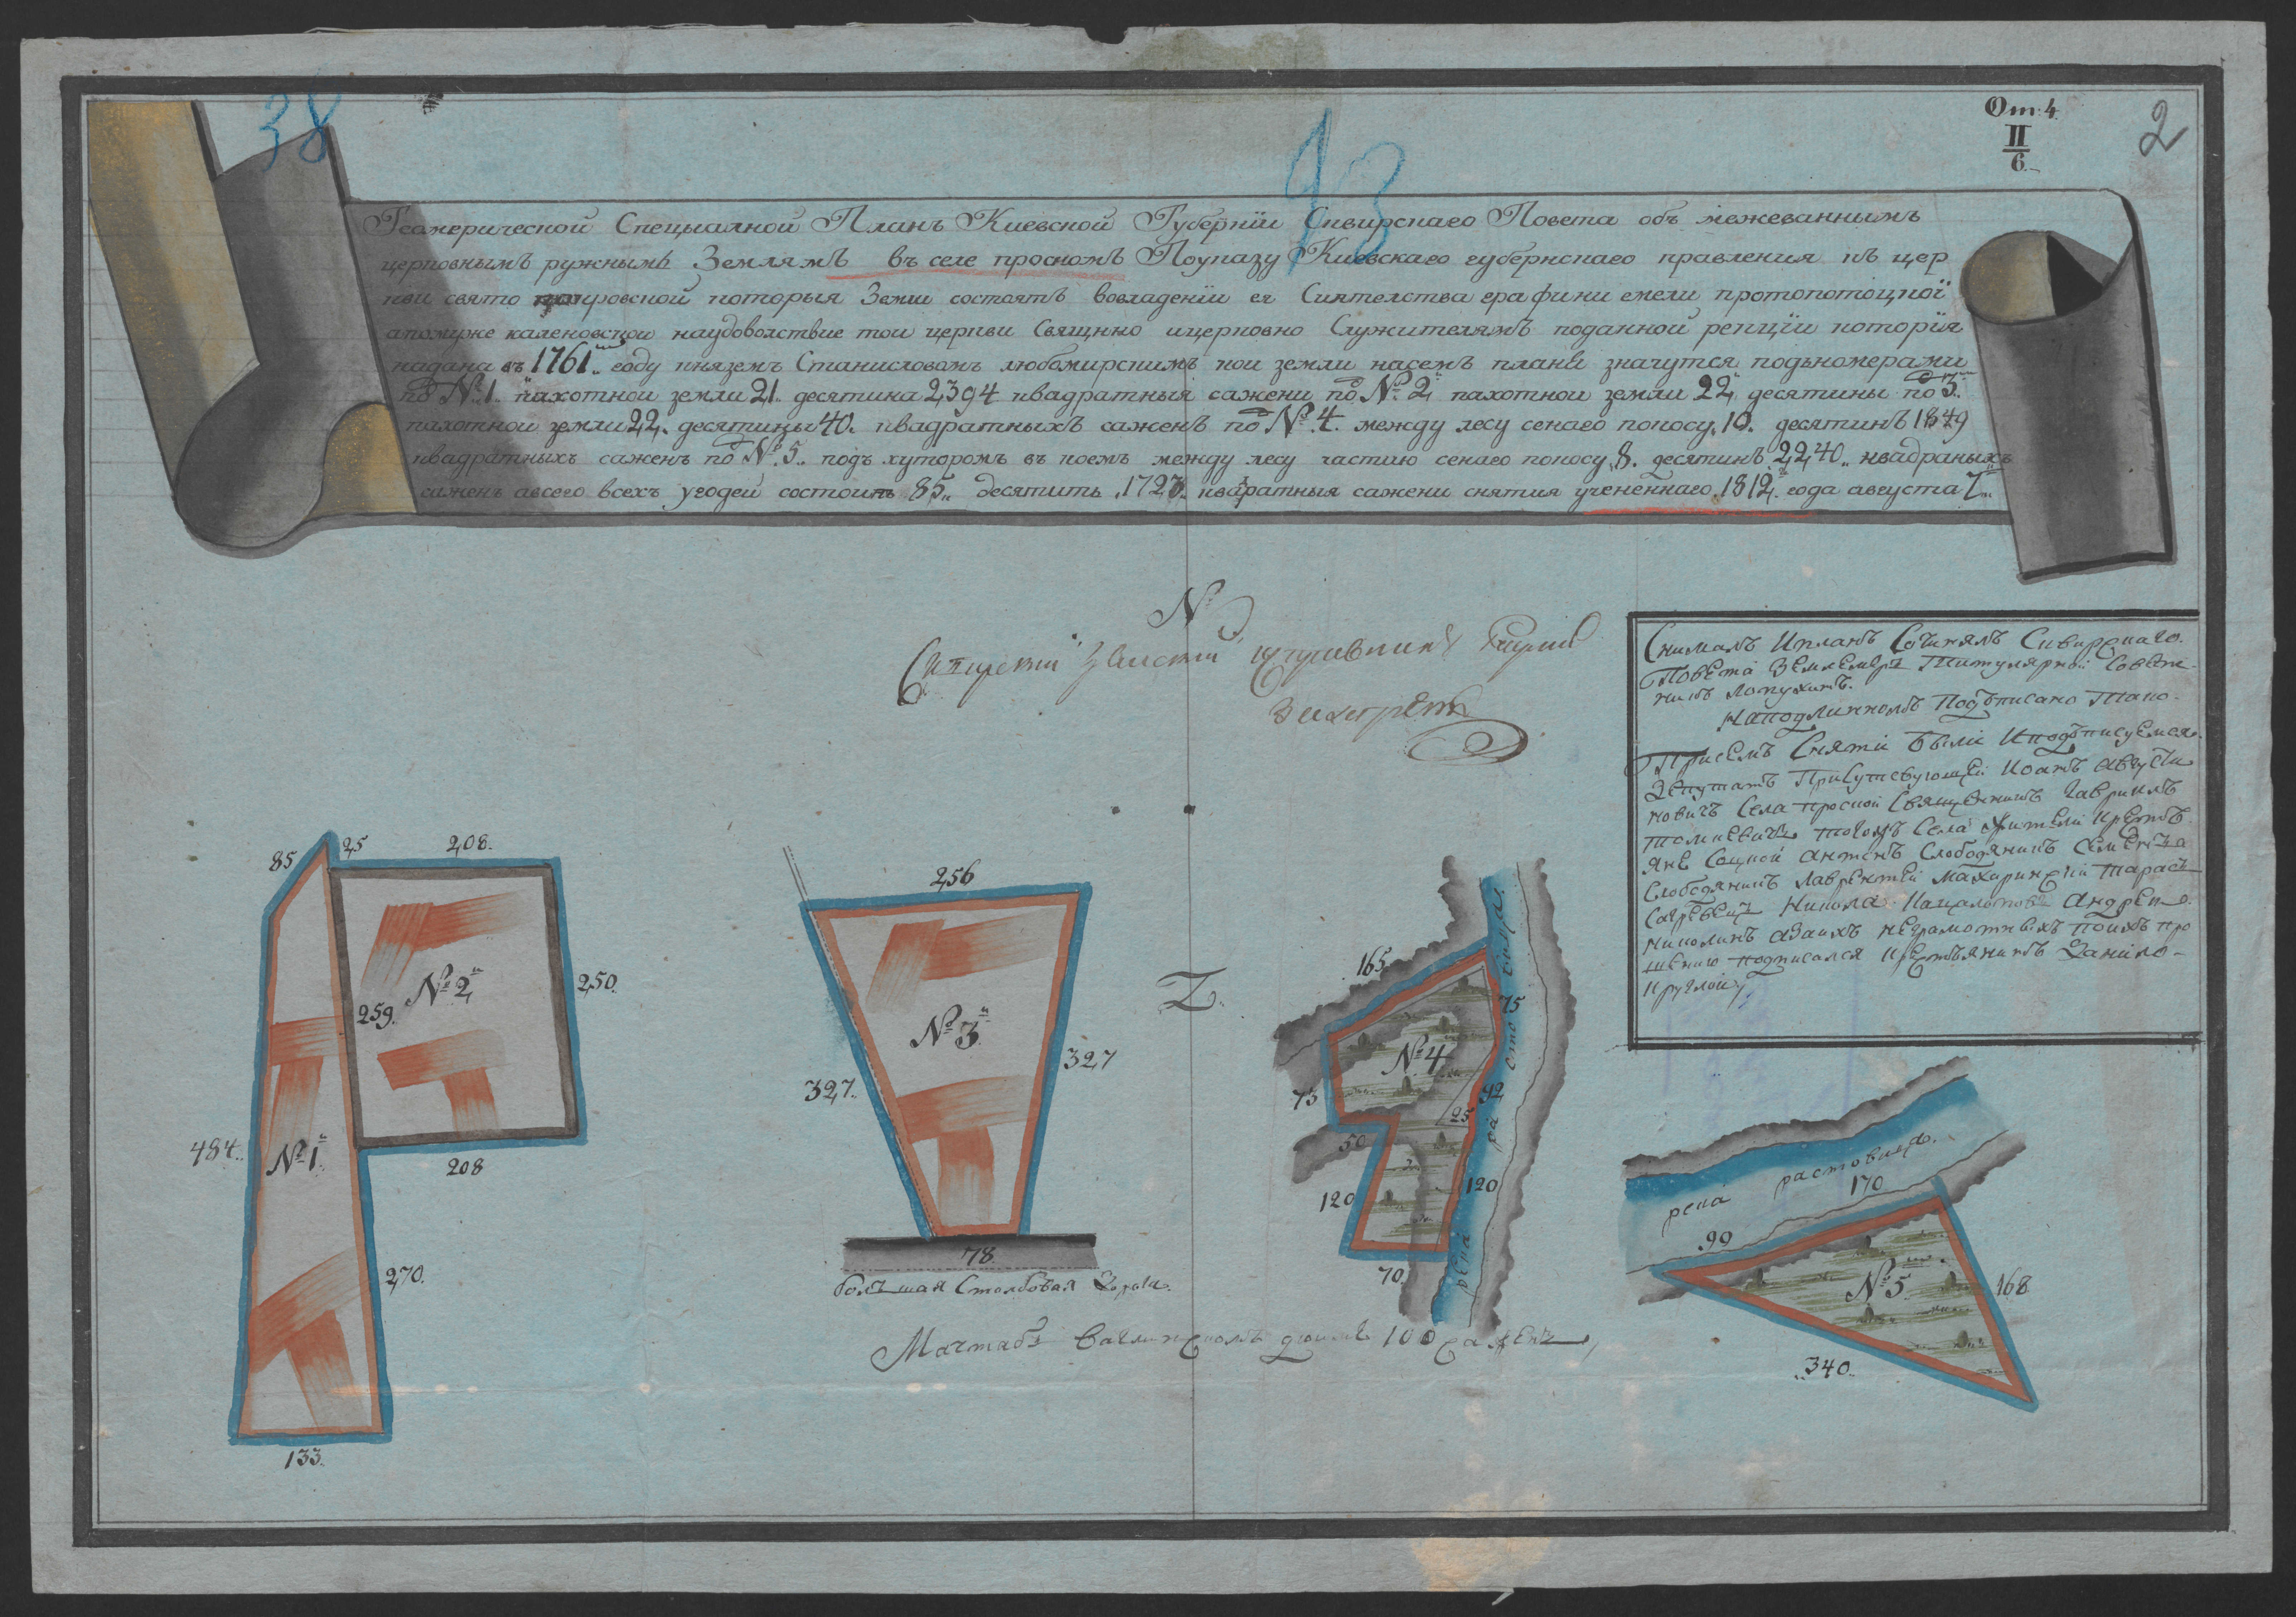 38
13
От: 4.
II
6.
2
Геомерической Специалной Планъ Киевской Губернїи Сквирскаго Повета объ межеваннымъ
церковнымъ ружнымъ Землямъ въ селе проскомъ Поуказу Киевскаго губернскаго правления къ цер
кви свято покровской которыя Земли состоятъ вовладенїи ея Сиятелства графини емели протопотоцкої
апомуже каленовской наудоволствие тои церкви Священно ицерковно Служителямъ поданной
надана въ 1761 году княземъ Станисловомъ любомирскимъ кои земли насемъ плане значутся подъномерами
по № 1 пахотнои земли 21. десятина 2394 квадратныя сажени по № 2 пахотнои земли 22 десятины по 3.
пахотнои земли 22. десятины 40. квадратныхъ саженъ по № 4. между лесу сенаго покосу 10. десятинъ 1849
квадратныхъ саженъ по № 5. подъ хуторомъ въ коемъ между лесу частию сенаго покосу 8. десятинъ 2240 квадраныхъ
саженъ авсего всехъ угодей состоитъ 85. десятинъ 1723. квадратныя сажени снятия учененнаго 1812. года августа 7
№
Снималъ Ипланъ Сочинялъ Сквирскаго
Повета Землемеръ Титулярной Совет-
никъ Лопухинъ.
Наподлинномъ Подъписано Тако.
Присемъ Снятіи Были Иподъписуемся
Депутатъ Присутсвующей Иоанъ Августи
новичъ Села проской Священникъ Гаврилъ
Томкевичъ тогожъ Села Жители Крестъ
яне Соцкой Антонъ Слободяникъ Семенъ
Слободяникъ Лаврентей Махаринскій Тарасъ
Никола Андрей
николинъ азаихъ неграмотныхъ поихъ про
шению подписался Крестьянинъ Данило
круглой
85
25
208.
259.
№ 2
250.
484.
№ 1
208
270.
133.
256
№ 3
327.
327
78
болъшая Столбовая Дорога.
165
75
№ 4
73
92
25
50
120
120
70.
река
река растовица.
170
99
№ 5
168
340.
Мачтабъ Ваглинскомъ дюиме 100 саженъ